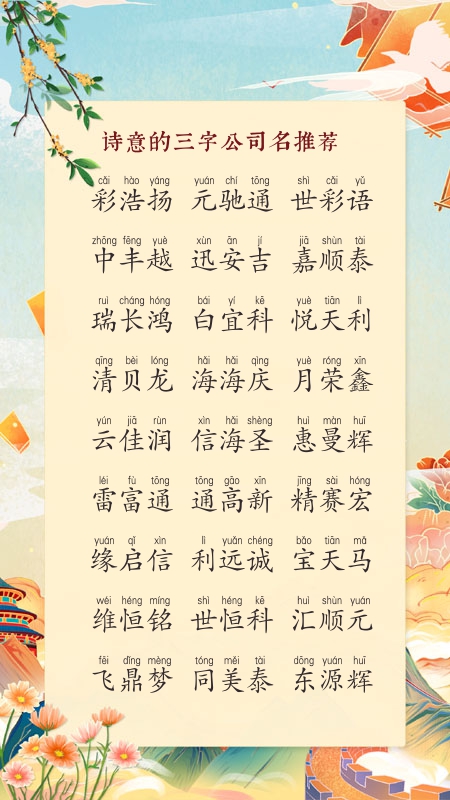 诗意的三字公司名推荐
cǎi hào yáng yuán chí tōng shì cǎi yǔ
彩浩扬 元驰通 世彩语
zhōng fēng yuè xùn ān jí jiā shùn tài
中丰越 迅安吉 嘉顺泰
ruì cháng hóng bái yí kē yuè tiān lì
瑞长鸿 白宜科 悦天利
qīng bèi lóng hǎi hǎi qìng yuè róng xīn
清贝龙 海海庆 月荣鑫
yún jiā rùn xìn hǎi shèng huì màn huī
云佳润 信海圣 惠曼辉
léi fù tōng tōng gāo xīn jīng sài hóng
雷富通 通高新 精赛宏
yuán qǐ xìn lì yuǎn chéng bǎo tiān mǎ
缘启信 利远诚 宝天马
wéi héng míng shì héng kē huì shùn yuán
维恒铭 世恒科 汇顺元
fēi dǐng mèng tóng měi tài dōng yuán huī
飞鼎梦 同美泰 东源辉